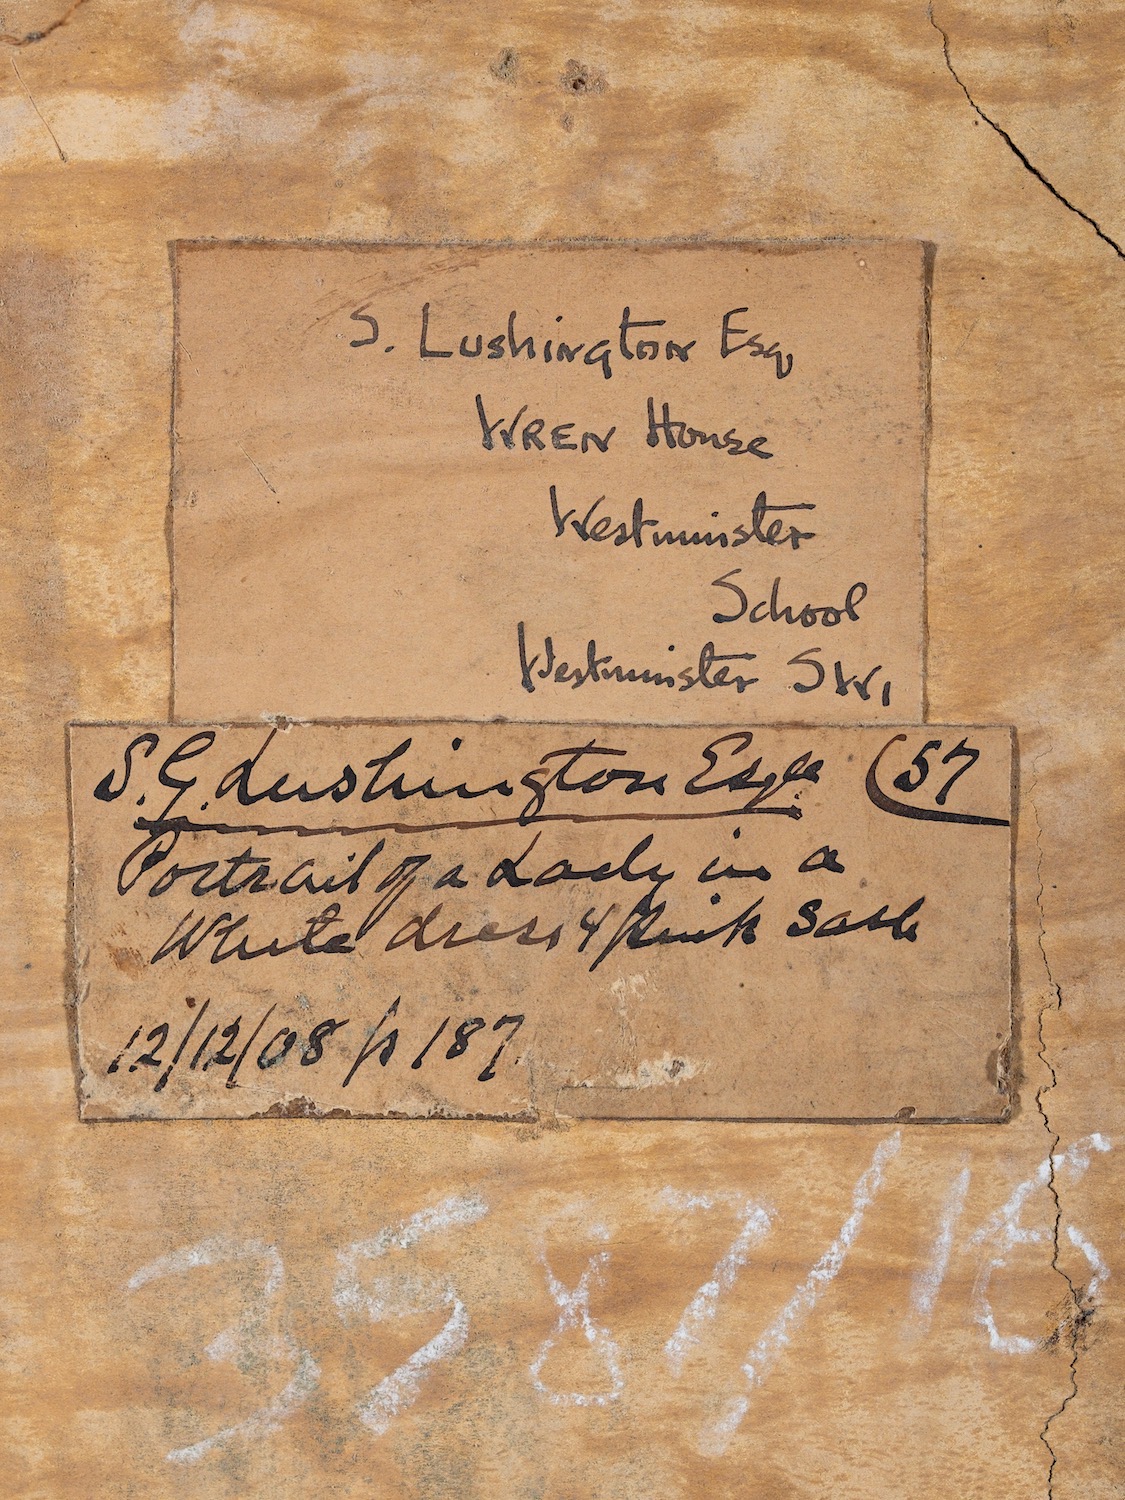 S. Lushington Esq
WREN House
Westminster
School
Westminster SW1
S.G. Lushington Esqre (57
Portrait of a Lady in a
White dress & Pink Sash
12/12/08 p 187
3587/16